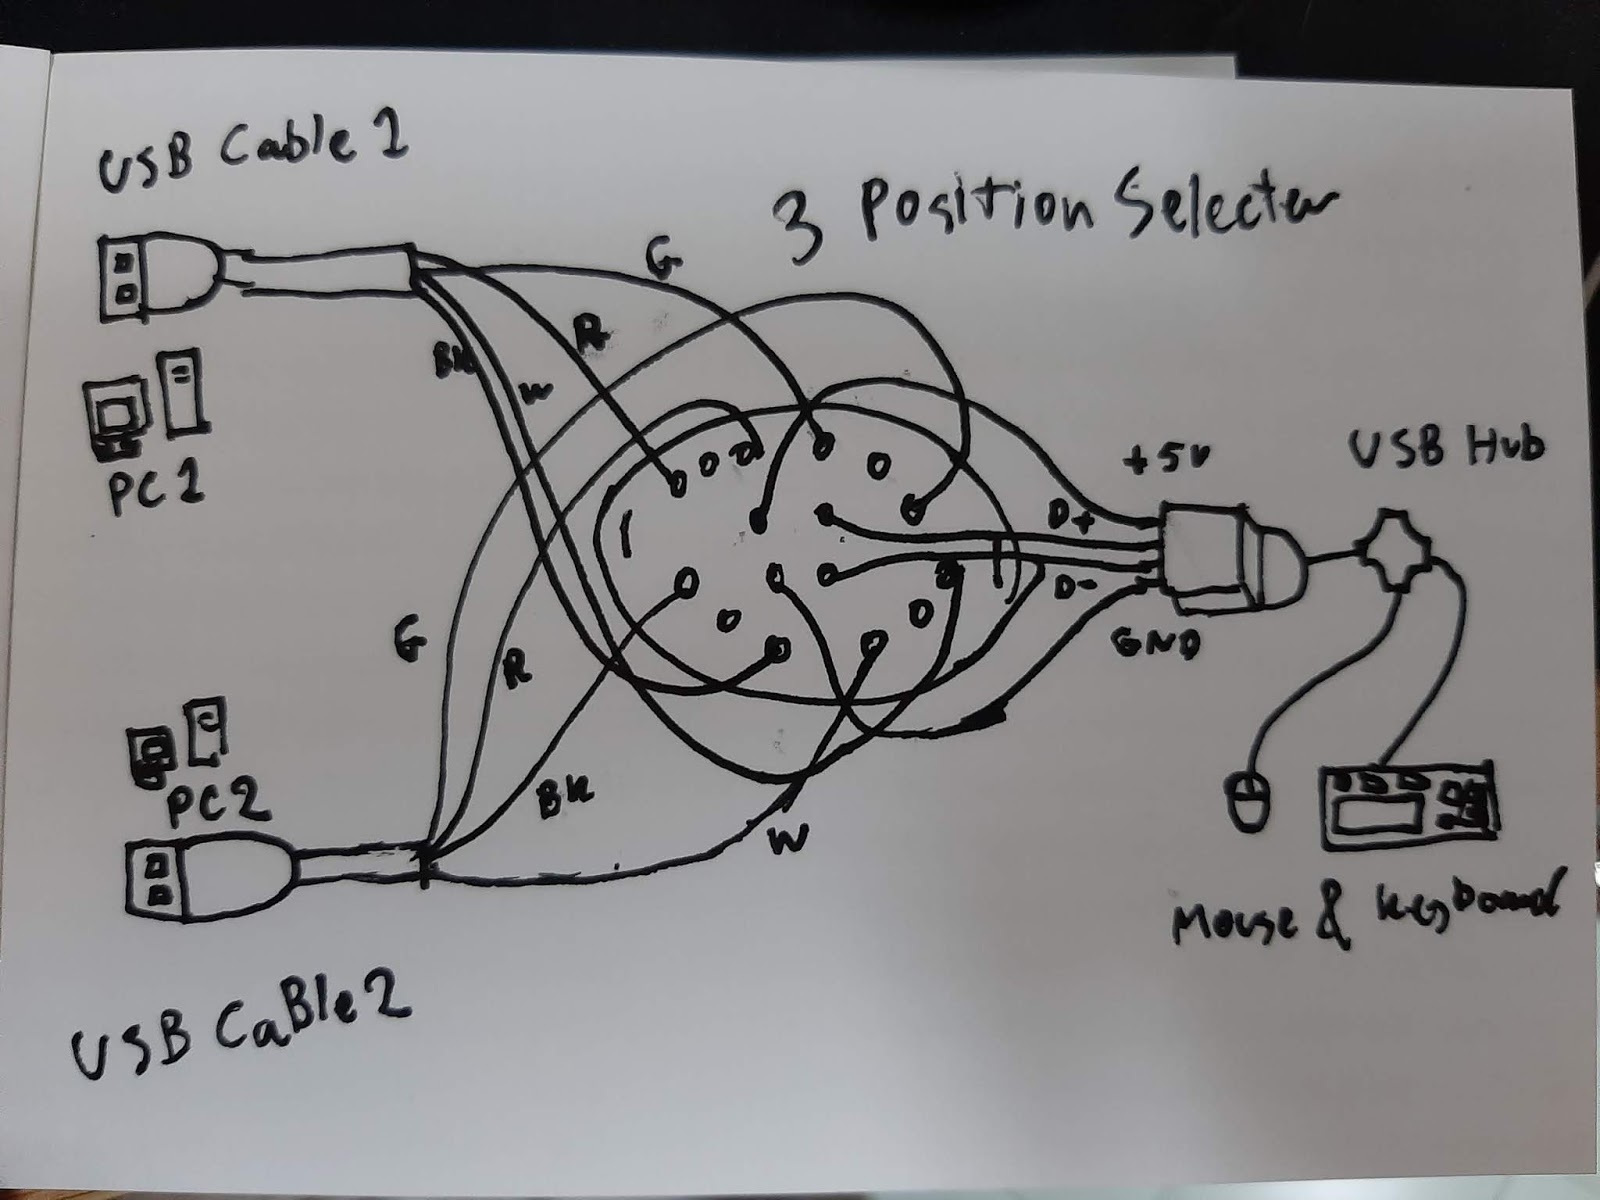 USB Cable 1
3 Position Selecter
G
R
BK
W
PC1
+5V
USB Hub
D+
D-
GND
G
R
PC2
BK
W
Mouse & Keyboard
USB CaBle 2